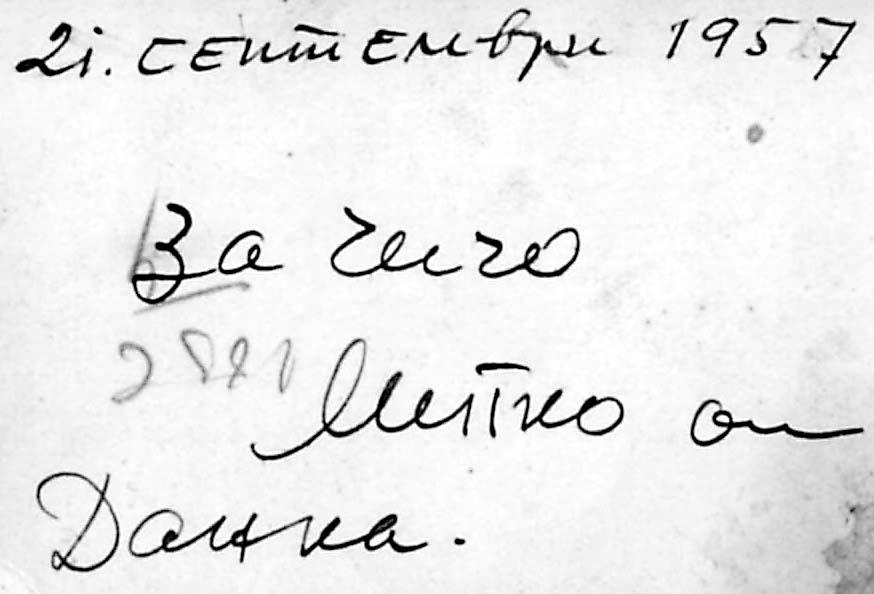 21. септември 1957
За чичо
Митко от
Данка.